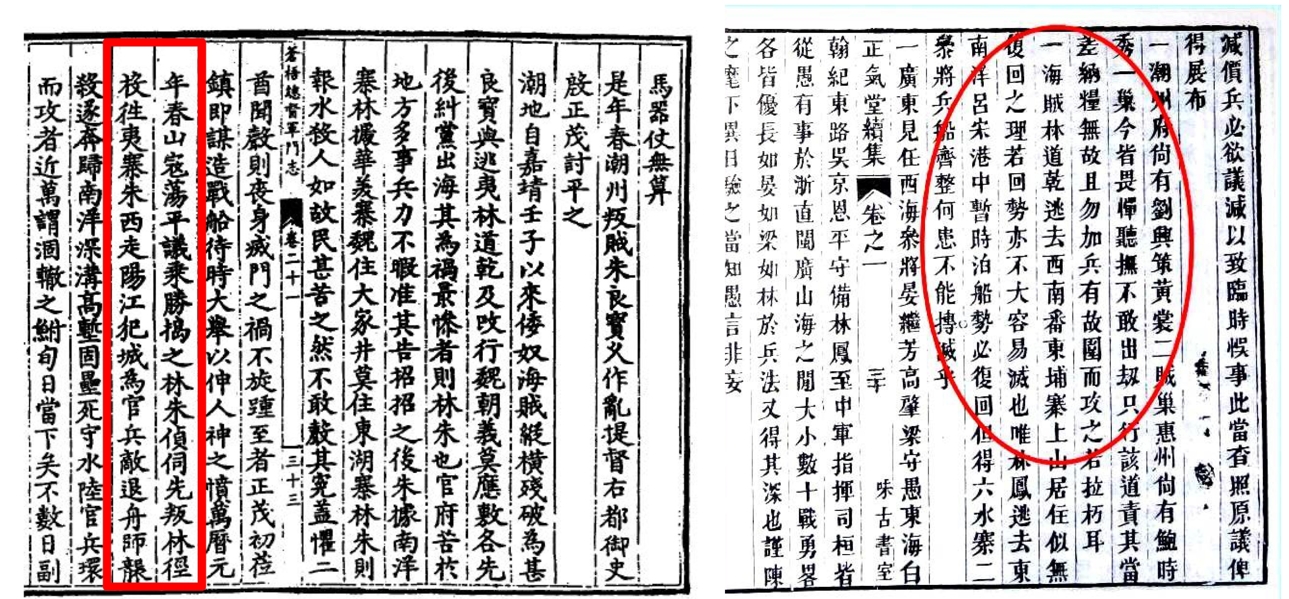 馬器仗無算
是年春潮州叛賊朱良寶乂作亂提督右都御史
殷正茂討平之
潮地自嘉靖壬子以來倭奴海賊縱橫殘破為甚
良寶與逃夷林道乾及攺行魏朝義莫應敷各先
後糾黨出海其為禍最慘者則林朱也官府苦於
地方多事兵力不暇准其告招招之後朱據南洋
寨林據華美寨魏住大家井莫住東湖寨林朱則
報水殺人如故民甚苦之然不敢其寃盖懼二
蒼梧總督軍門志 卷二十一 三十三
酋聞則喪身滅門之禍不旋踵至者正茂初莅
鎮即謀造戰船待時大舉以伸人神之憤萬曆元
年春山寇蕩平議乘勝搗之林朱偵伺先叛林徑
投徃夷寨朱西走陽江犯城為官兵敵退舟師襲
殺逐奔歸南洋深溝高塹固壘死守水陸官兵環
而攻者近萬謂涸轍之鮒旬日當下矣不數日副
减價兵必欲議减以致臨時悮事此當査照原議俾
得展布
一潮州府尙有劉興策黃裳二賊巢惠州尙有鮑時
秀一巢今皆畏憚聽撫不敢出刼只行該道責其當
差納糧無故且勿加兵有故圍而攻之若拉朽耳
一海賊林道乾逃去西南番東埔寨上山居住似無
復回之理若回勢亦不大容易滅也唯林鳳逃去東
南洋呂宋港中暫時泊船勢必復回但得六水寨二
叅將兵船齊整何患不能摶滅乎
一廣東見任西海叅將晏繼芳高肇梁守愚東海白
正氣堂續集 卷之一 三十 味古書室
翰紀東路吳京恩平守備林鳳至中軍指揮司桓皆
從愚有事於浙直閩廣山海之閒大小數十戰勇畧
各皆優長如晏如梁如林於兵法又得其深也謹陳
之麾下異日驗之當知愚言非妄